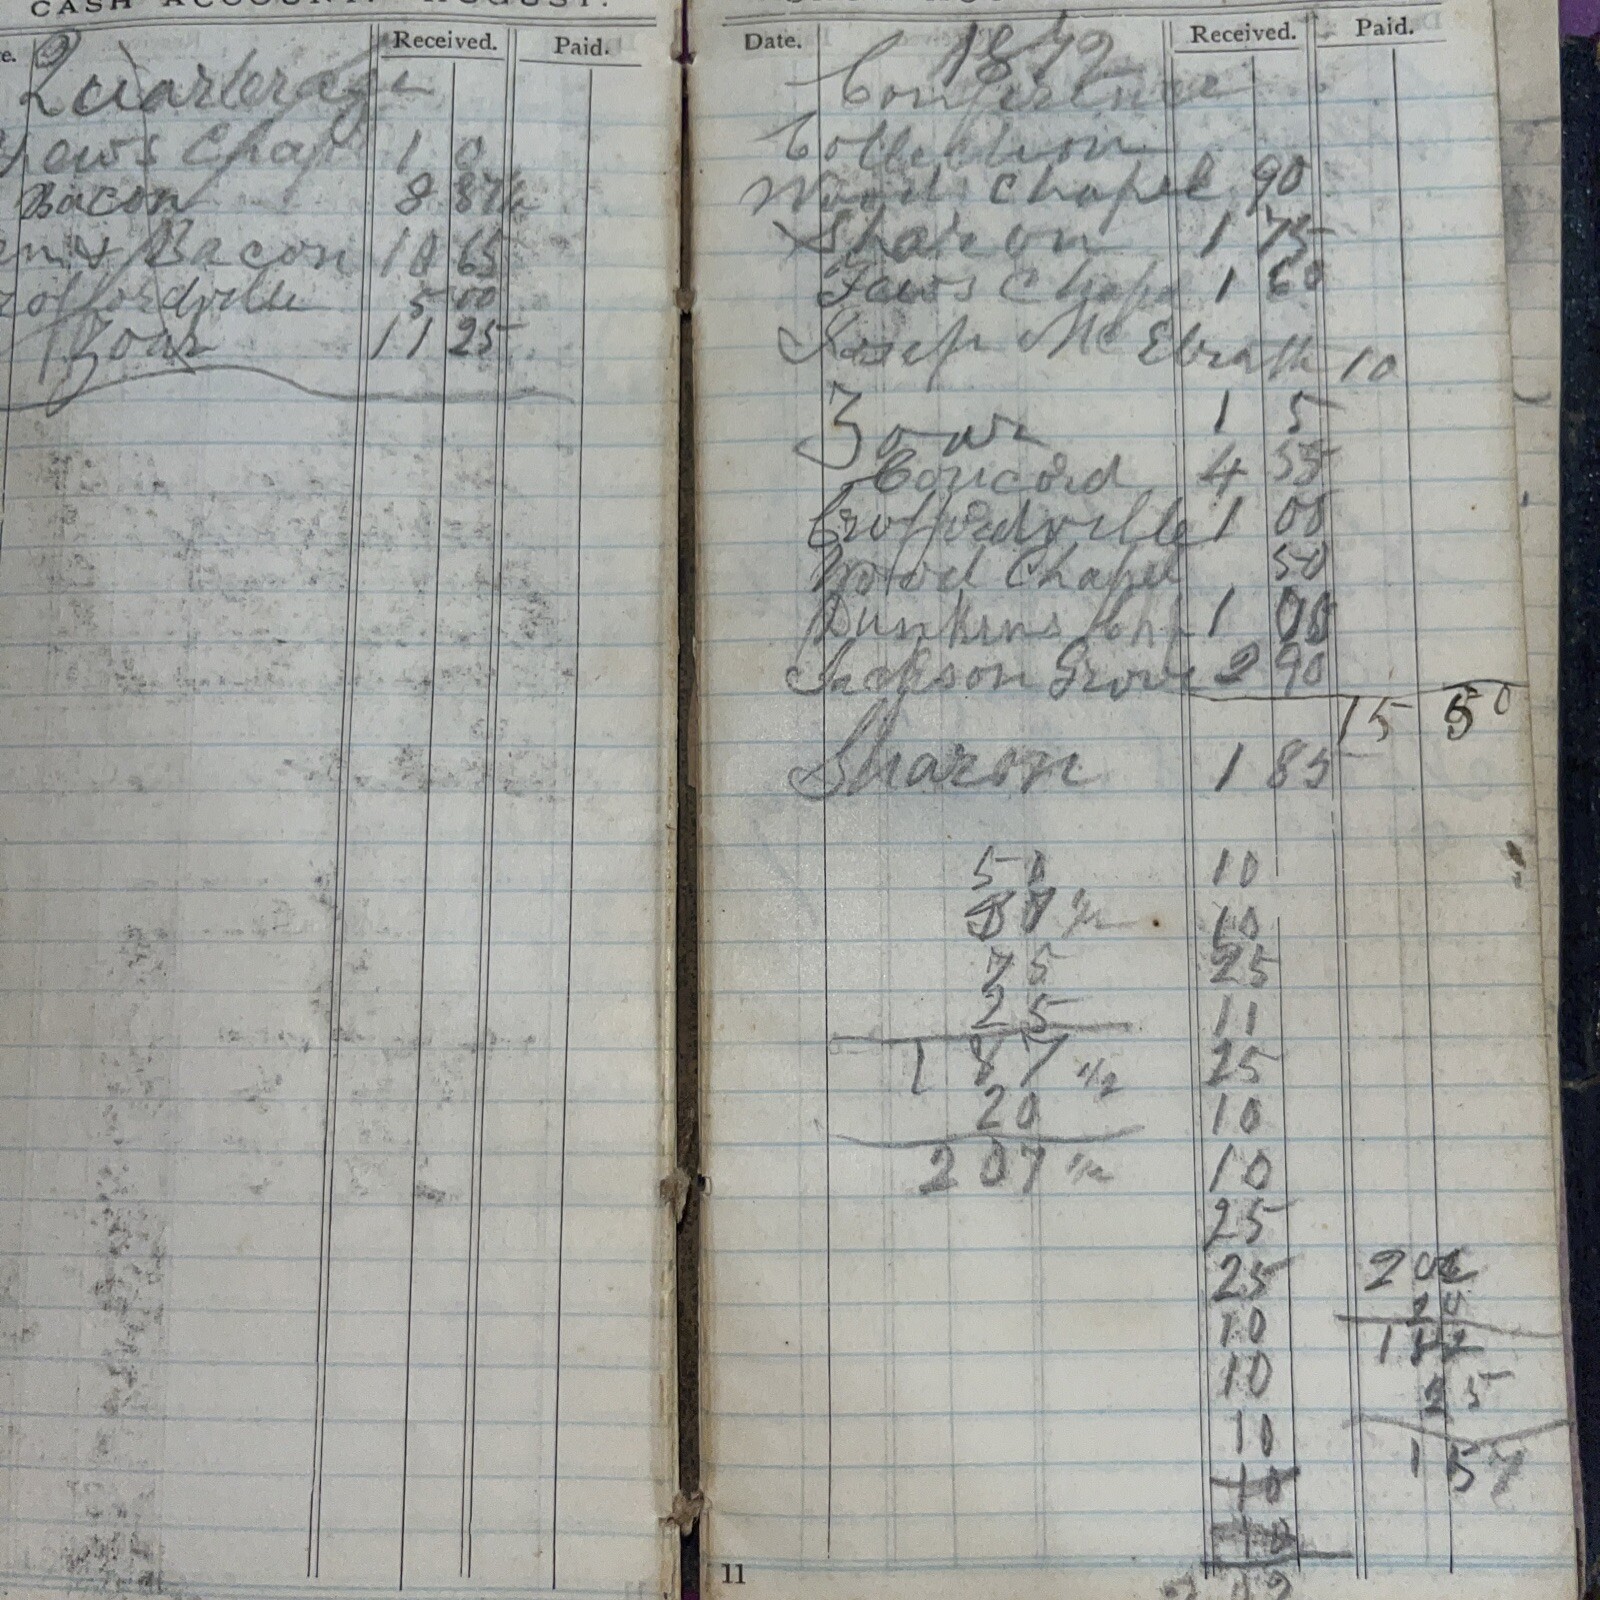 CASH ACCOUNT. AUGUST.
Received. Paid.
Quarterage
Faws Chap 1 0
Bacon 8 87½
Bacon 10 65
offordville 5 00
Zoar 11 25
Date. Received. Paid.
1872
Conference
Collection
Wood Chapel 90
Sharon 1 75
Faws Chape 1 60
Josep Mc Elrath 10
Zoar 1 5
Concord 4 55
Croffordville 1 00
Wood Chapel 50
Dunkins 1 05
Jackson Grove 2 90
15 50
Sharon 1 85
50 10
87½ 10
75 25
25 11
1 87 1/2 25
20 10
207 1/2 10
25
25
10
10 25
10 157
10
10
11